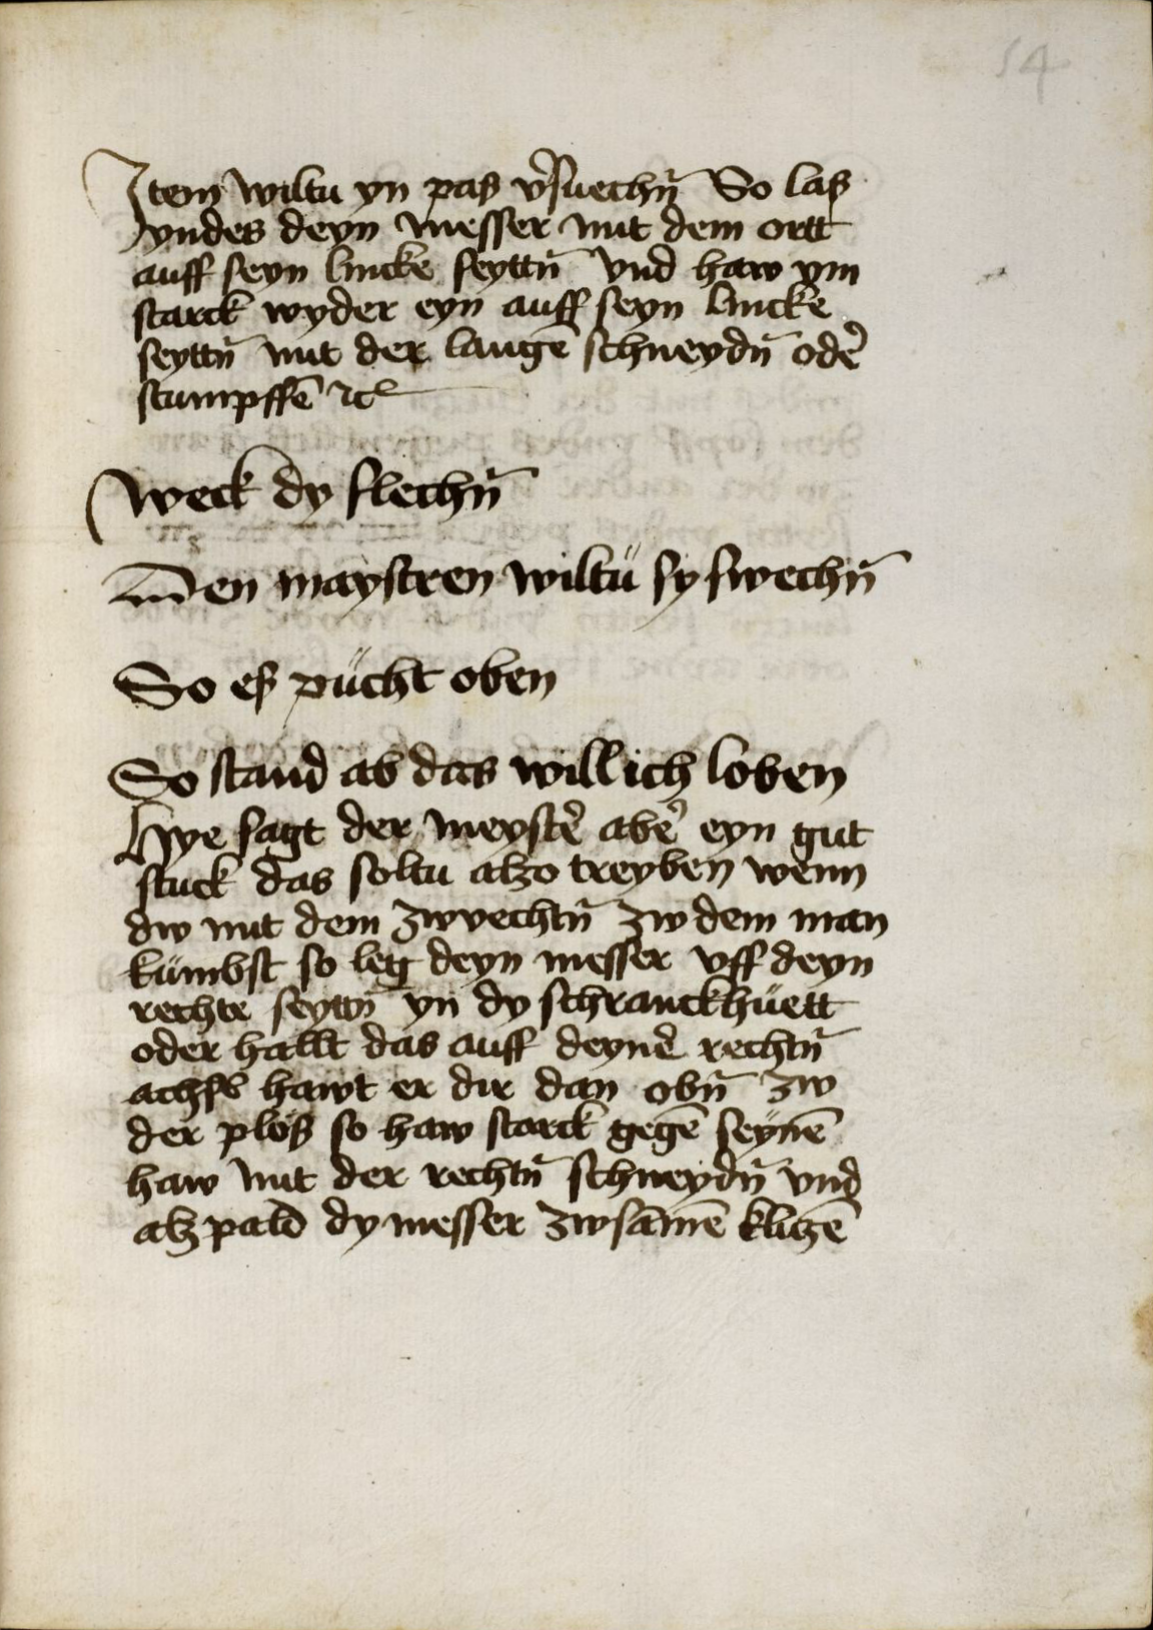 54
Item wiltu yn pas v̉suechn̄ So las
yndes deyn messer mit dem ortt
auff seyn lincke seyttn̄ vnd haw ym
starck wyder eyn auff seyn lincke
seyttn̄ mit der langē schneydn̄ odē
stumpffē ꝛc
Weck dy flechn̄
Den maystren wiltü sy swechn̄
So es pücht oben
So stand ab das will ich loben
Hye sagt der meystē abē eyn gut
stuck das soltu alzo treyben wenn
dw mit dem zwvechtn̄ zw dem man
kümbst so leg deyn messer vff deyn
rechte seyttn̄ yn dy schranckhüett
oder hallt das auff deynē rechtn̄
achsl hawt er dir dan obn̄ zw
der plös so haw starck gegē seynē
haw mit der rechtn̄ schneydn̄ vnd
alz pald dy messer zwsāmē klitzē